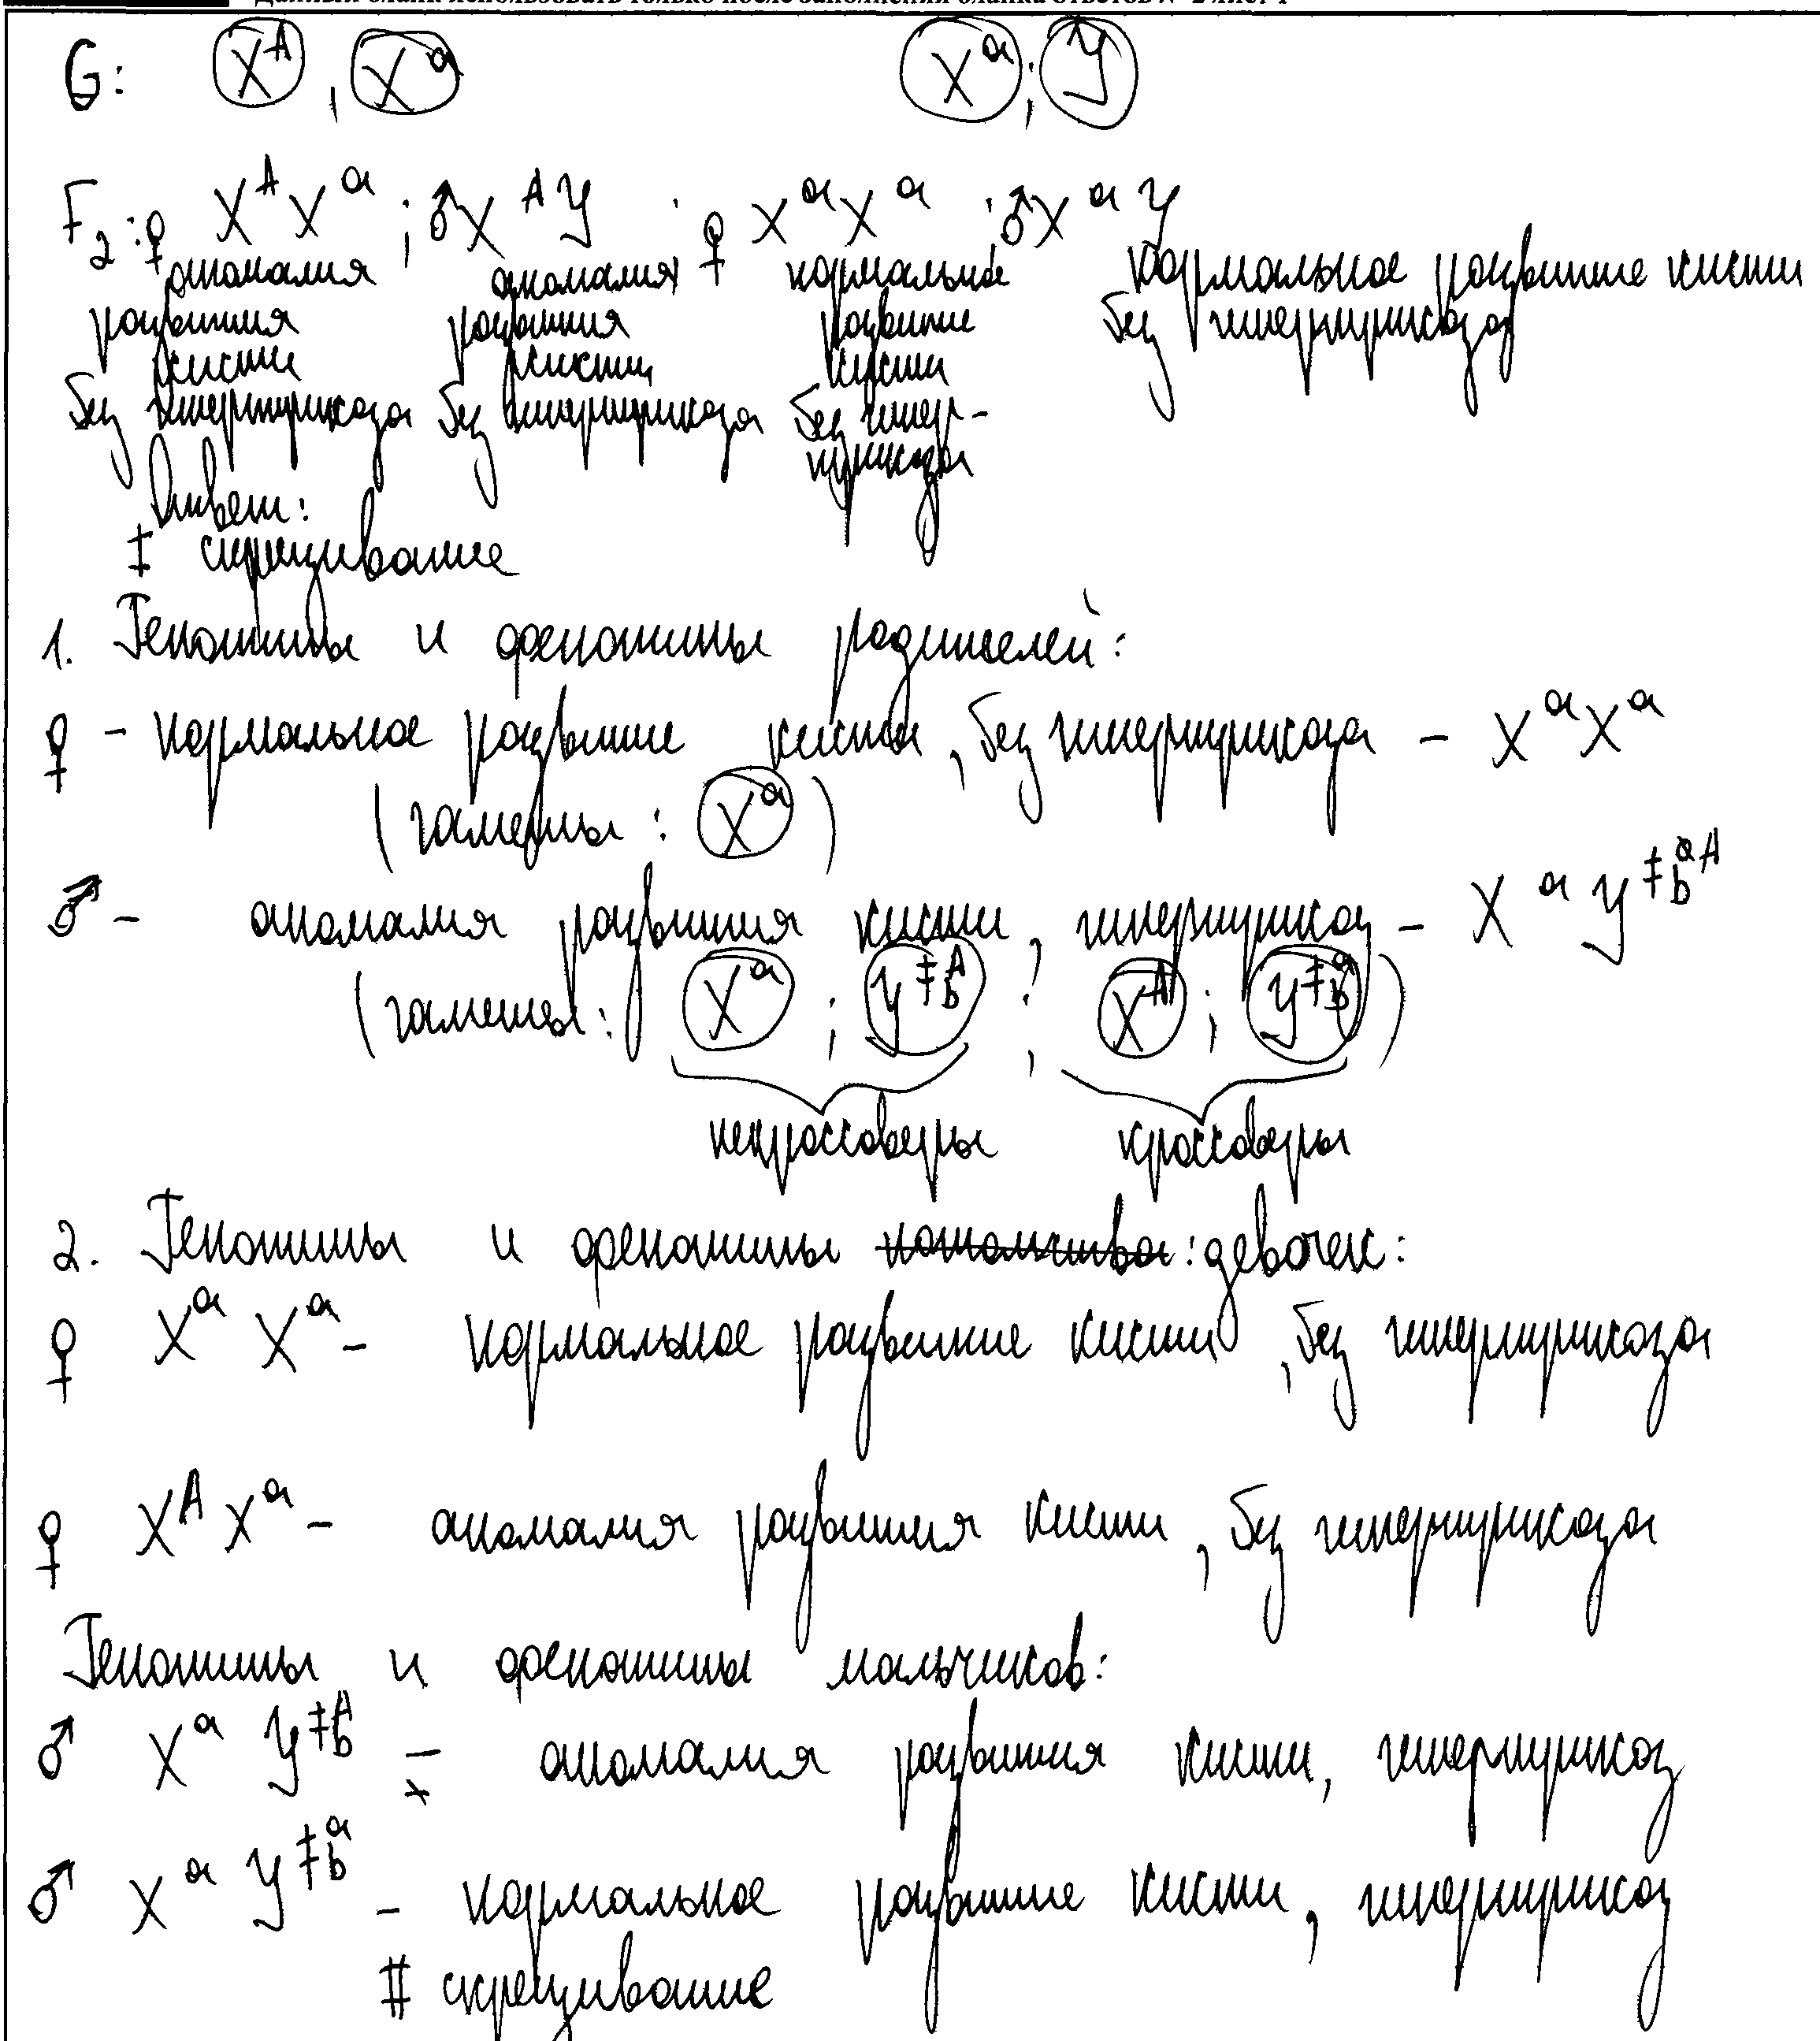 Данный бланк использовать только после заполнения бланка ответов № 2 лист 1
G: X^A , X^a X^a ; Y
F₂: ♀ X^A X^a ; ♂ X^A Y ; ♀ X^a X^a ; ♂ X^a Y
аномалия аномалия нормальное нормальное развитие кисти
развития развития развитие без гипертрихоза
кисти кисти кисти
без гипертрихоза без гипертрихоза без гипер-
трихоза
Ответ:
I скрещивание
1. Генотипы и фенотипы родителей:
♀ – нормальное развитие кисти, без гипертрихоза – X^a X^a
(гаметы: X^a)
♂ – аномалия развития кисти, гипертрихоз – X^a Y^‡b^A
(гаметы: X^a ; Y^‡b^A ; X^A ; Y^‡b^a)
некроссоверы кроссоверы
2. Генотипы и фенотипы потомства: девочек:
♀ X^a X^a – нормальное развитие кисти, без гипертрихоза
♀ X^A X^a – аномалия развития кисти, без гипертрихоза
Генотипы и фенотипы мальчиков:
♂ X^a Y^‡b^A – аномалия развития кисти, гипертрихоз
♂ X^a Y^‡b^a – нормальное развитие кисти, гипертрихоз
II скрещивание